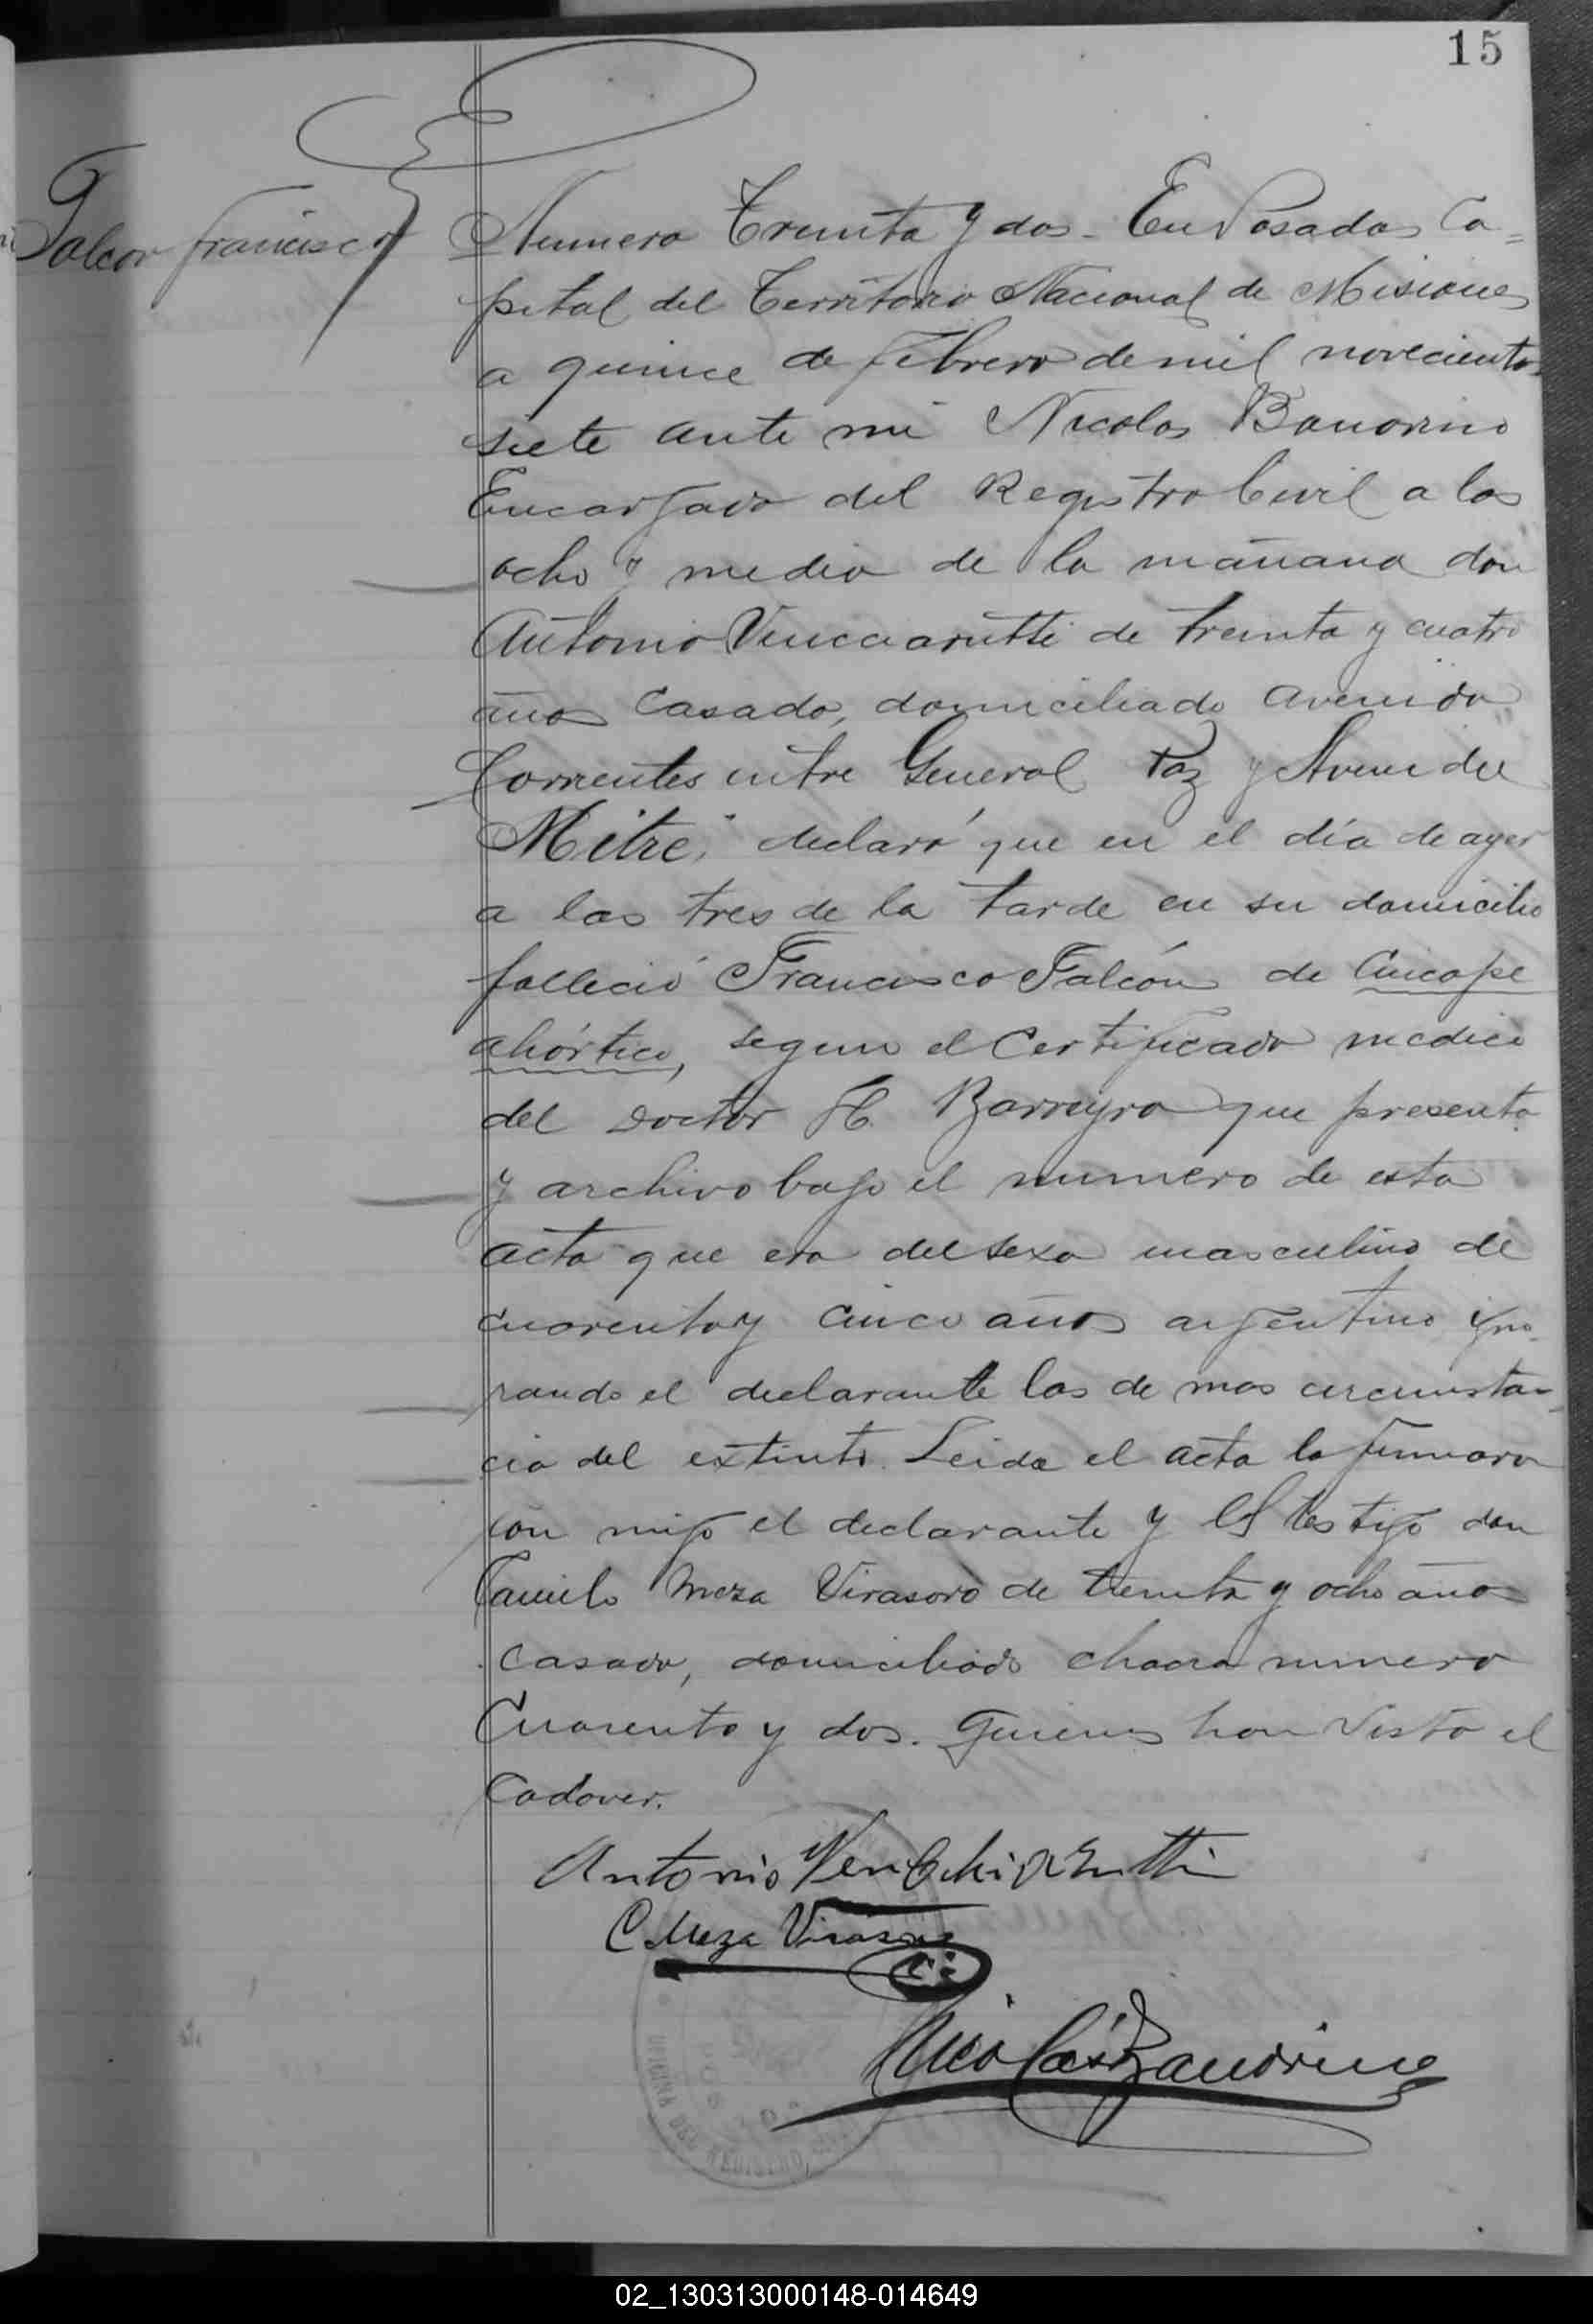 15
Falcon Francisco
Numero Treinta y dos - En Posadas Ca=
pital del Territorio Nacional de Misiones
a quince de febrero de mil novecientos
siete ante mi Nicolas Bonorino
Encargado del Registro Civil a las
ocho y media de la mañana don
Antonio Vencciarutti de treinta y cuatro
años casado, domiciliado avenida
Corrientes entre General Paz y Avenida
Mitre, declaró que en el día de ayer
a las tres de la tarde en su domicilio
falleció Francisco Falcón de Cincope
ahórtico, segun el Certificado medico
del Doctor H. Barreyro que presenta
y archivo bajo el numero de esta
acta que era del sexo masculino de
cuarenta y cinco años argentino igno-
rando el declarante las de mas circunstan-
cia del extinto. Leida el acta la firmaron
con migo el declarante y el testigo don
Camilo Meza Virasoro de treinta y ocho años
casado, domiciliado chacra numero
Cuarenta y dos. Quienes han visto el
Cadaver.
Antonio Venchiarutti
C Meza Virasoro
Nicolas Bonorino
OFICINA DEL REGISTRO
02_130313000148-014649